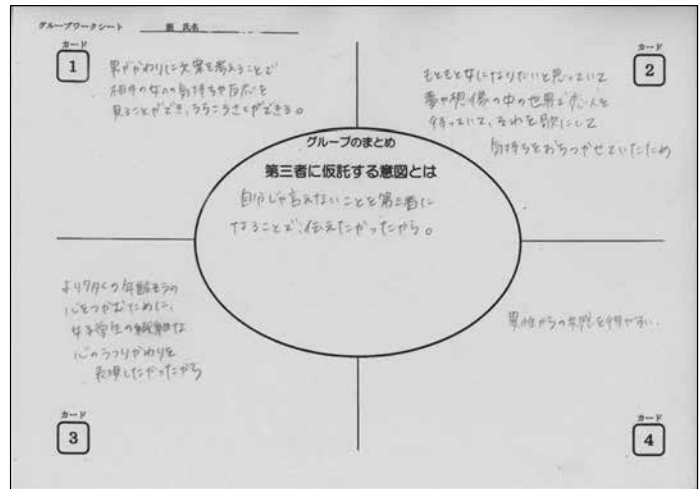 グループワークシート 班 氏名
カード
1
男がかわりに文案を考えることで
相手の女の人の気持ちや反応を
見ることができ、うらこうさくができる。
カード
2
もともと女になりたいと思っていて
夢や想像の中の世界で恋人を
待っていて、それを歌にして
気持ちをおちつかせていたため
グループのまとめ
第三者に仮託する意図とは
自分じゃ言えないことを第三者に
なることで、伝えたかったから。
より多くの年齢そうの
心をつかむために、
女子学生の繊細な
心のうつりかわりを
表現したかったから
カード
3
男性からの共感を得やすい。
カード
4